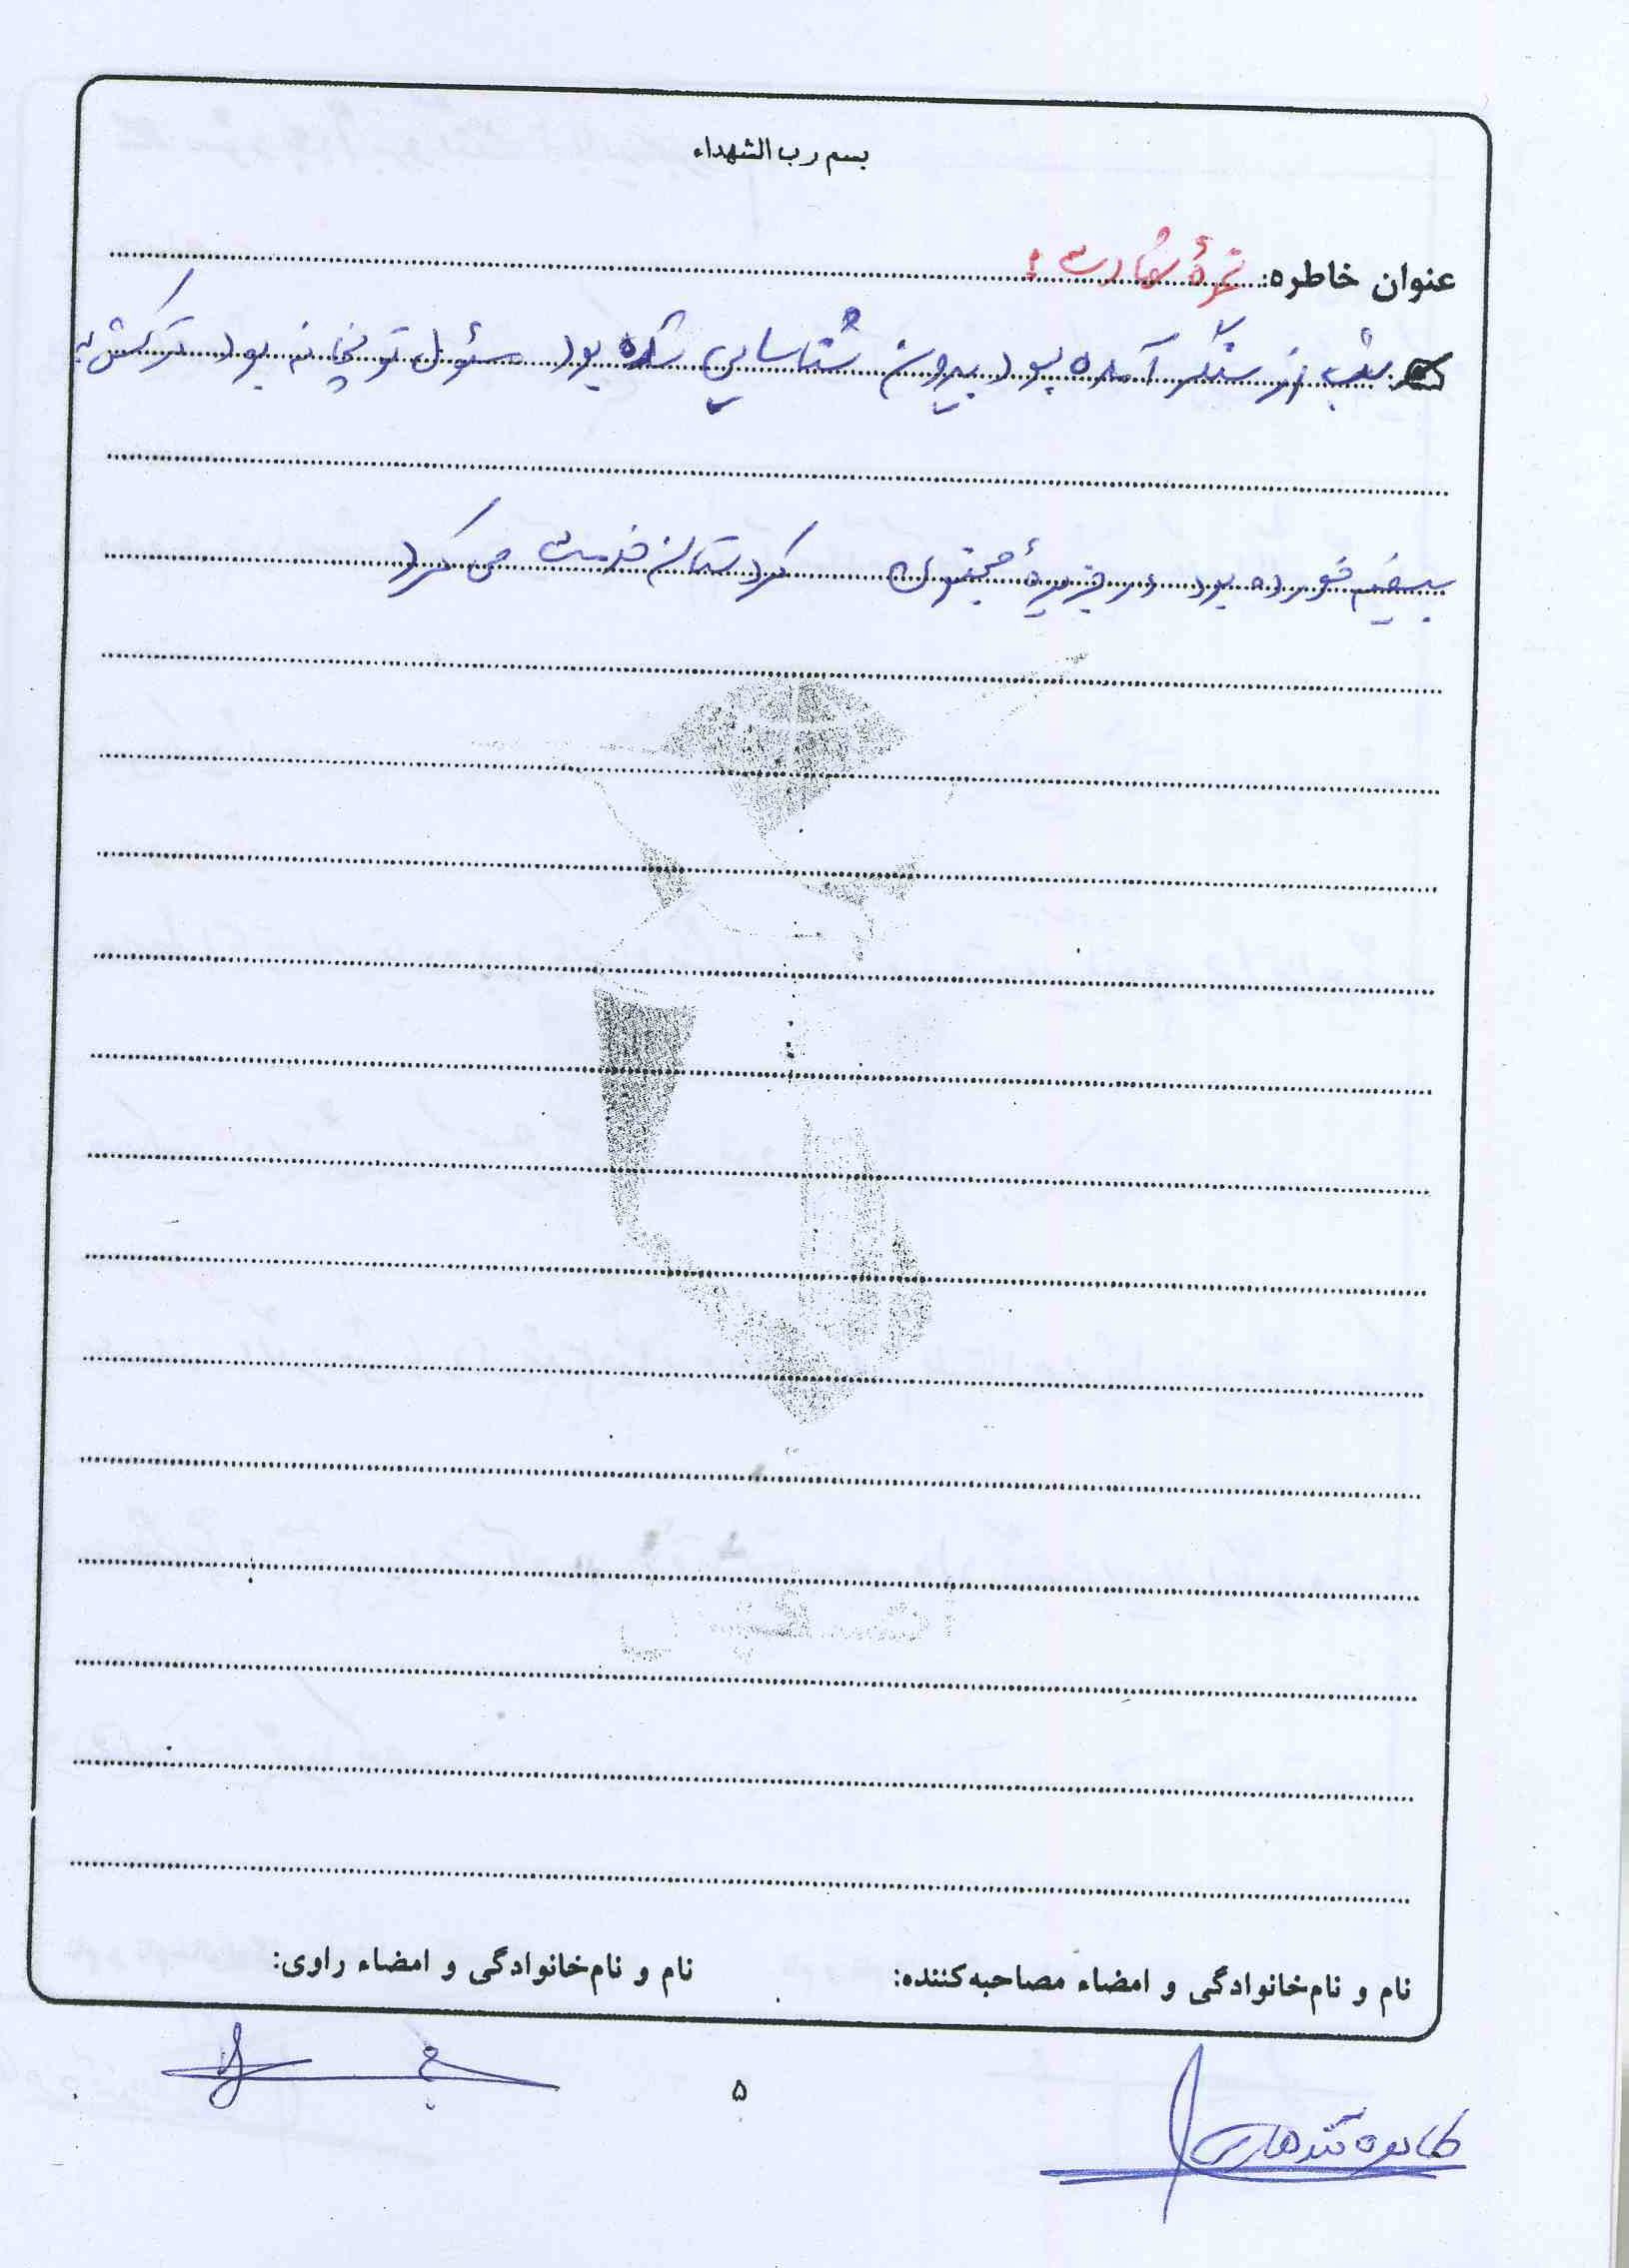 بسم رب الشهداء
عنوان خاطره: نحوهٔ شهادت:
شب از سنگر آمده بود بیرون شناسایی شده بود مسئول توپخانه بود ترکش به
خورده بود در جزیرهٔ مجنون کردستان خدمت می کرد
نام و نام‌خانوادگی و امضاء مصاحبه‌کننده: نام و نام‌خانوادگی و امضاء راوی:
۵